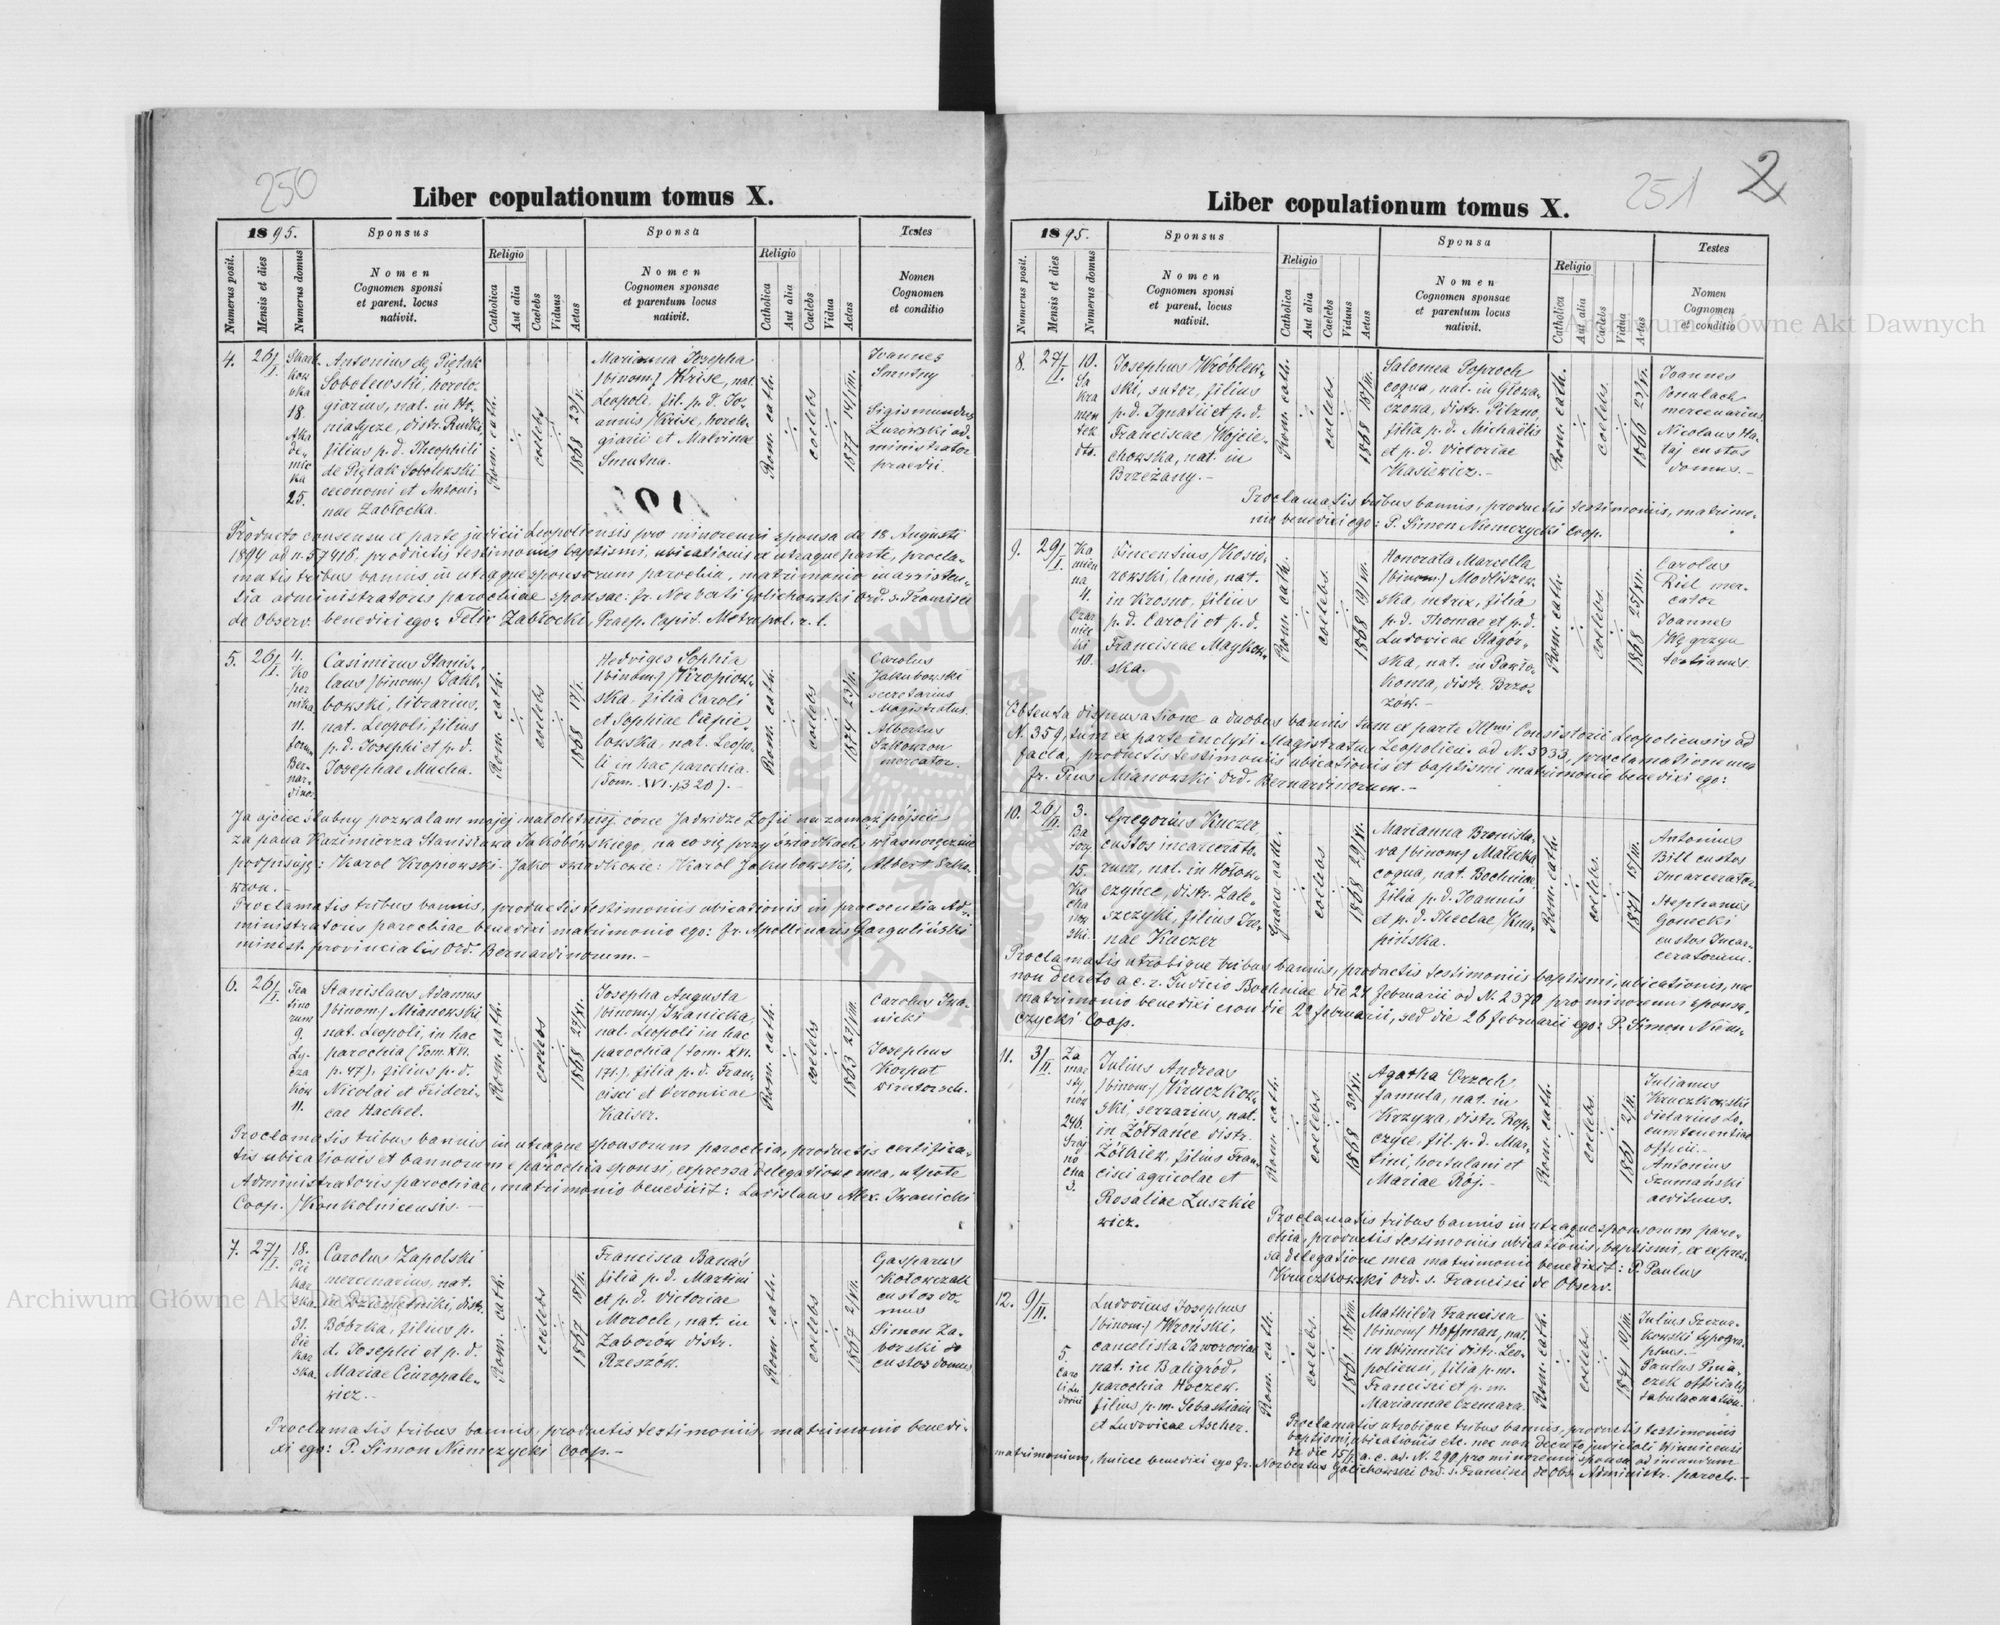 250
Liber copulationum tomus X.
1895.
Sponsus
Sponsa
Testes
Numerus posit.
Mensis et dies
Numerus domus
Nomen
Cognomen sponsi
et parent. locus
nativit.
Religio
Catholica
Aut alia
Caelebs
Viduus
Aetas
Nomen
Cognomen sponsae
et parentum locus
nativit.
Religio
Catholica
Aut alia
Caelebs
Vidua
Aetas
Nomen
Cognomen
et conditio
4.
26/I.
18.
Aka
de„
mic
ka
25.
Antonius de Piętak
Sobolewski, horolo„
giarius, nat. in
distr. Rudki,
filius p. d. Theophili
de Piętak Sobolewski
oeconomi et Antoni„
nae Zabłocka.
Rom. cath.
coelebs
1868 23/V.
Marianna Josepha
(binom.) Krise, nat.
Leopoli. fil. p. d. Jo„
annis Krise, horolo„
giarii et Malvinae
Smutna.
Rom. cath.
coelebs
1877 14/III.
Ioannes
Smutny
Sigismundus
Żurowski ad„
ministrator
praedii.
Producto consensu ex parte judicii Leopoliensis pro minorenni sponsa de 18 Augusti
1894 ad n. 57416, productis testimoniis baptismi, ubicationis ex utraque parte, procla„
matis tribus bannis, in utraque sponsorum parochia, matrimonio in assisten„
tia administratoris parochiae sponsae: fr. Norberti Golichowski Ord. s. Francisci
de Observ. benedixi ego: Felix Zabłocki, Praep. Capit. Metropol. r. l.
5.
26/I.
4.
Ko
per
nika
11.
forum
Ber„
nar„
dinor.
Casimirus Stanis„
laus (binom.) Jakó„
bowski, librarius,
nat. Leopoli, filius
p. d. Josephi et p. d.
Josephae Mucha.
Rom. cath.
coelebs
1868
Hedviges Sophia
(binom.) Kropiow„
ska, filia Caroli
et Sophiae Cie­pie„
lowska, nat. Leopo„
li in hac parochia.
(Tom. XVI. p. 320). –
Rom. cath.
coelebs
1874
Carolus
Jakubowski
secretarius
Magistratus.
Albertus
Szkowron
mercator.
Ja ojciec ślubny pozwalam mojej małoletniej córce Jadwidze Zofii na zamąż pójście
za pana Kazimierza Stanisława Jakóbowskiego, na co się przy świadkach własnoręcznie
podpisuję: Karol Kropiowski. Jako świadkowie: Karol Jakubowski, Albert Szko„
wron. –
Proclamatis tribus bannis, productis testimoniis ubicationis in praesentia Ad„
ministratoris parochiae benedixi matrimonio ego: fr. Apollinaris Garguliński
minist. provincialis Ord. Bernardinorum. –
6.
26/I.
Tea
tino
rum
9.
Ły„
cza
ków
11.
Stanislaus Adamus
(binom.) Mianowski
nat. Leopoli, in hac
parochia (Tom. XVI.
p. 47), filius p. d.
Nicolai et Frideri„
cae Hackel.
Rom. cath.
coelebs
1868
Josepha Augusta
(binom.) Iwanicka,
nat. Leopoli in hac
parochia (tom. XVI.
171.) filia p. d. Fran„
cisci et Veronicae
Kaiser.
Rom. cath.
coelebs
1863
Carolus Iwa„
nicki
Josephus
Korpat
Proclamatis tribus bannis in utraque sponsorum parochia, productis certifica„
tis ubicationis et bannorum e parochia sponsi, expressa delegatione mea, utpote
Administratoris parochiae, matrimonio benedixit: Ladislaus Alex. Iwanicki
Coop. Konkolnicensis. –
7.
27/I.
18.
Pie
kar
ska.
31.
Pie
kar
ska.
Carolus Zapolski
mercenarius, nat.
in distr.
Bóbrka, filius p.
d. Josephi et p. d.
Mariae Ciuropale„
wicz. –
Rom. cath.
coelebs
1867
Francisca Banaś
filia p. d. Martini
et p. d. Victoriae
Moroch, nat. in
Zaborów distr.
Rzeszów.
Rom. cath.
coelebs
1867
Gasparus
Kołowczak
custos do„
mus
Simon Za„
borski
custos domus
Proclamatis tribus bannis, productis testimoniis, matrimonio benedi„
xi ego: P. Simon Niemczycki Coop. –
251
2
Liber copulationum tomus X.
1895.
Sponsus
Sponsa
Testes
Numerus posit.
Mensis et dies
Numerus domus
Nomen
Cognomen sponsi
et parent. locus
nativit.
Religio
Catholica
Aut alia
Caelebs
Viduus
Aetas
Nomen
Cognomen sponsae
et parentum locus
nativit.
Religio
Catholica
Aut alia
Caelebs
Vidua
Aetas
Nomen
Cognomen
et conditio
8.
27/I.
10.
Sa
kra
men
tek
Josephus Wróblew„
ski, sutor, filius
p. d. Ignatii et p. d.
Franciscae Wojcie„
chowska, nat. in
Brzeżany. –
Rom. cath.
coelebs
1868
Salomea Poproch
coqua, nat. in
distr. Pilzno,
filia p. d. Michaelis
et p. d. Victoriae
Kasiewicz. –
Rom. cath.
coelebs.
1866
Joannes
mercenarius.
Nicolaus Ha„
taj custos
domus. –
Proclamatis tribus bannis, productis testimoniis, matrimo„
nio benedixi ego: P. Simon Niemczycki Coop.
9.
29/I.
Ka
mien
na
4.
Czar
niec
ki
10.
Vincentius Kosio„
rowski, lanio, nat.
in Krosno, filius
p. d. Caroli et p. d.
Franciscae Maykow„
ska.
Rom. cath.
coelebs
1868
Honorata Marcella
(binom.) Modliszew„
ska, netrix, filia
p. d. Thomae et p. d.
Ludovicae Nagór„
ska, nat. in Pawło„
koma, distr. Brzo„
zów. –
Rom. cath.
coelebs.
1868
Carolus
Riel mer„
cator
Joannes
Węgrzyn
tertianus.
Obtenta dispensatione a duobus bannis tum ex parte Illmi Consistorii Leopoliensis ad
N. 359, tum ex parte inclyti Magistratus Leopolien. ad N. 3033, proclamatione una
facta, productis testimoniis ubicationis et baptismi matrimonio benedixi ego:
fr. Pius Mianowski Ord. Bernardinorum. –
10.
26/II.
3.
Ba
tory
15.
Ko
cha
now
ski.
Gregorius Kuczer,
custos incarcerato„
rum, nat. in Hołow„
czyńce, distr. Zale„
szczyki, filius Ire„
nae Kuczer
Graeco cath.
coelebs
1868
Marianna Bronisla„
va (binom) Małecka
coqua, nat. Bochniae
filia p. d. Joannis
et p. d. Theclae Kna„
pińska.
Rom. cath.
coelebs.
1871
Antonius
Bill custos
Incarcerator.
Stephanus
Gonecki
custos Incar„
ceratorum.
Proclamatis utrobique tribus bannis, productis testimoniis baptismi, ubicationis, nec
non decreto a c. r. Judicio Bochniae die 24 februarii ad N. 2370 pro minorenni sponsa,
matrimonio benedixi non die 22 februarii, sed die 26 februarii ego: P. Simon Niem„
czycki Coop.
11.
3/II.
Za
mar
sty„
nów
246.
Snia
no
cha
3.
Julius Andreas
(binom.) Kruczkow„
ski, serrarius, nat.
in Żółtańce distr.
Żółkiew, filius Fran„
cisci agricolae et
Rosaliae Łuszkie
wicz.
Rom. cath.
coelebs.
1868
Agatha Orzech,
famula, nat. in
Krzywa, distr. Rop„
czyce, fil. p. d. Mar„
tini, hortulani et
Mariae Rój. –
Rom. cath.
coelebs.
1861
Julianus
Kruczkowski
dietarius Lo„
cumtenentiae
officii. –
Antonius
Szumański
aedituus.
Proclamatis tribus bannis in utraque sponsorum paro„
chia, productis testimoniis ubicationis, baptismi, ex expres„
sa delegatione mea matrimonio benedixit: P. Paulus
Kruczkowski Ord. s. Francisci de Observ.
12.
9/II.
5.
Caro
li Lu
dovici
Ludovicus Josephus
(binom.) Wroński,
cancelista Jaworoviae
nat. in Baligród,
parochia Hoczew.
filius p. m. Sebastiani
et Ludovicae Ascher.
Rom. cath.
coelebs.
1861
Mathilda Francisca
(binom) Hoffman, nat.
in Winniki distr. Leo„
poliensi, filia p. m.
Francisci et p. m.
Mariannae Czemara.
Rom. cath.
coelebs.
Julius Szczur„
kowski typogra„
phus. –
Paulus
czek officialis
tabulae nation.
Proclamatis utrobique tribus bannis, productis testimoniis
baptismi, ubicationis etc. nec non decreto judiciali Winnicensi
de die 15/I a. c. ad N. 290 pro minorenni sponsa ad ineundum
matrimonium, huice benedixi ego fr. Norbertus Golichowski Ord. s. Francisci de Obs. Administr. paroch. –
ARCHIWUM GŁÓWNE AKT DAWNYCH
Archiwum Główne Akt Dawnych
Archiwum Główne Akt Dawnych